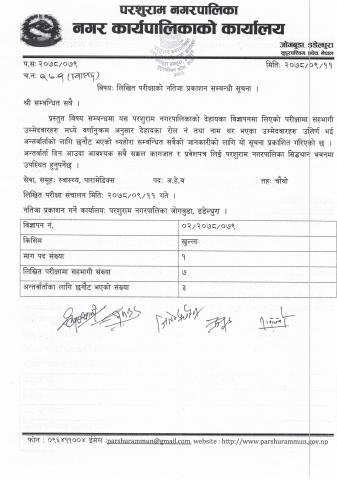 परशुराम नगरपालिका
नगर कार्यपालिकाको कार्यालय
जोगबुडा, डडेल्धुरा
सुदूरपश्चिम प्रदेश, नेपाल
प.स: २०७८/०७९
मिति: २०७८/०९/११
च.न:
विषय: लिखित परीक्षाको नतिजा प्रकाशन सम्बन्धी सूचना ।
श्री सम्बन्धित सबै ।
प्रस्तुत विषय सम्बन्धमा यस परशुराम नगरपालिकाको देहायका विज्ञापनमा लिएको परीक्षामा सहभागी
उम्मेदवारहरु मध्ये वर्णानुक्रम अनुसार देहायका रोल नं तथा नाम थर भएका उम्मेदवारहरु उतिर्ण भई
अन्तर्वार्ताको लागि छनौट भएको व्यहोरा सम्बन्धित सबैको जानकारीको लागि यो सूचना प्रकाशित गरिएको छ ।
अन्तर्वार्ता दिन आउदा आवश्यक सबै सक्कल कागजात र प्रवेशपत्र लिई परशुराम नगरपालिका सिद्धथान भवनमा
उपस्थित हुनुपर्नेछ ।
सेवा, समूह: स्वास्थ्य, पारामेडिक्स पद: अ.हे.व तह: चौथो
लिखित परीक्षा संचालन मिति: २०७८/०९/११ गते ।
नतिजा प्रकाशन गर्ने कार्यालय: परशुराम नगरपालिका जोगबुडा, डडेल्धुरा ।
विज्ञापन नं. ०२/२०७८/०७९
किसिम खुल्ला
माग पद संख्या १
लिखित परीक्षामा सहभागी संख्या ७
अन्तर्वार्ताका लागि छनौट भएको संख्या ३
फोन : ०९६४११००४ ईमेल :parshurammun@gmail.com, website : http://www.parshurammun.gov.np